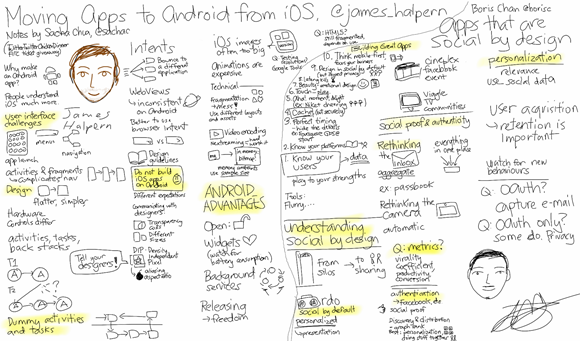 Moving Apps to Android from iOS, @james_halpern
Notes by Sacha Chua, @sachac
Why make
an Android
app?
People understand
iOS much more
User interface
challenges
menu
navigation
app launch
activities & fragments
Design
flatter, simpler
Hardware
Controls differ
activities, tasks,
back stacks
T1
A
A
T2
A
A
Dummy activities
and tasks
James
Halpern
Tell your
designers!
Intents
Bounce to
a different
application
WebViews
inconsistent
on Android
Better to use
browser intent
Design
guidelines
Do not build
iOS apps
on Android
Different expectations
Communicating with
designers:
Transparency
Different
Sizes
DIP Density
Independent
Pixel
aliasing
aspect ratio
iOS images
often too big
Animations are
expensive
Technical
Fragmentation
Use different layouts
and assets
Video encoding
ANDROID
ADVANTAGES
Open:
Widgets
(watch for
battery consumption)
Background
services
Releasing
→ freedom
Q: HTML5?
Still fragmented,
Q: Testing
Building Great apps
10. Think mobile first,
8. Beauty = emotional design
6. Touch = new
4. Cache
3. Perfect timing
2. Know your platforms
1. Know your
users
data
play to your strengths
Tools:
Flurry, ...
Understanding
social by design
From
silos
→ to
sharing
rdo
social by default
personalized
→ presentation
Boris Chan @borisc
apps that are
social by design
cineplex
facebook
event
Viggle
TV
communities
Social proof & authenticity
Rethinking
the
inbox
aggregate
everything
in one
place
ex: passbook
Rethinking the
Camera
automatic
Q: metrics?
virality
coefficient,
productivity,
conversions
authentication
→ Facebook, etc
social proof
Discovery & distribution
personalization
relevance
use social data
User acquisition
→ retention is
important
Watch for new
behaviours
Q: OAuth?
capture e-mail
Q: OAuth only?
Some do. Privacy